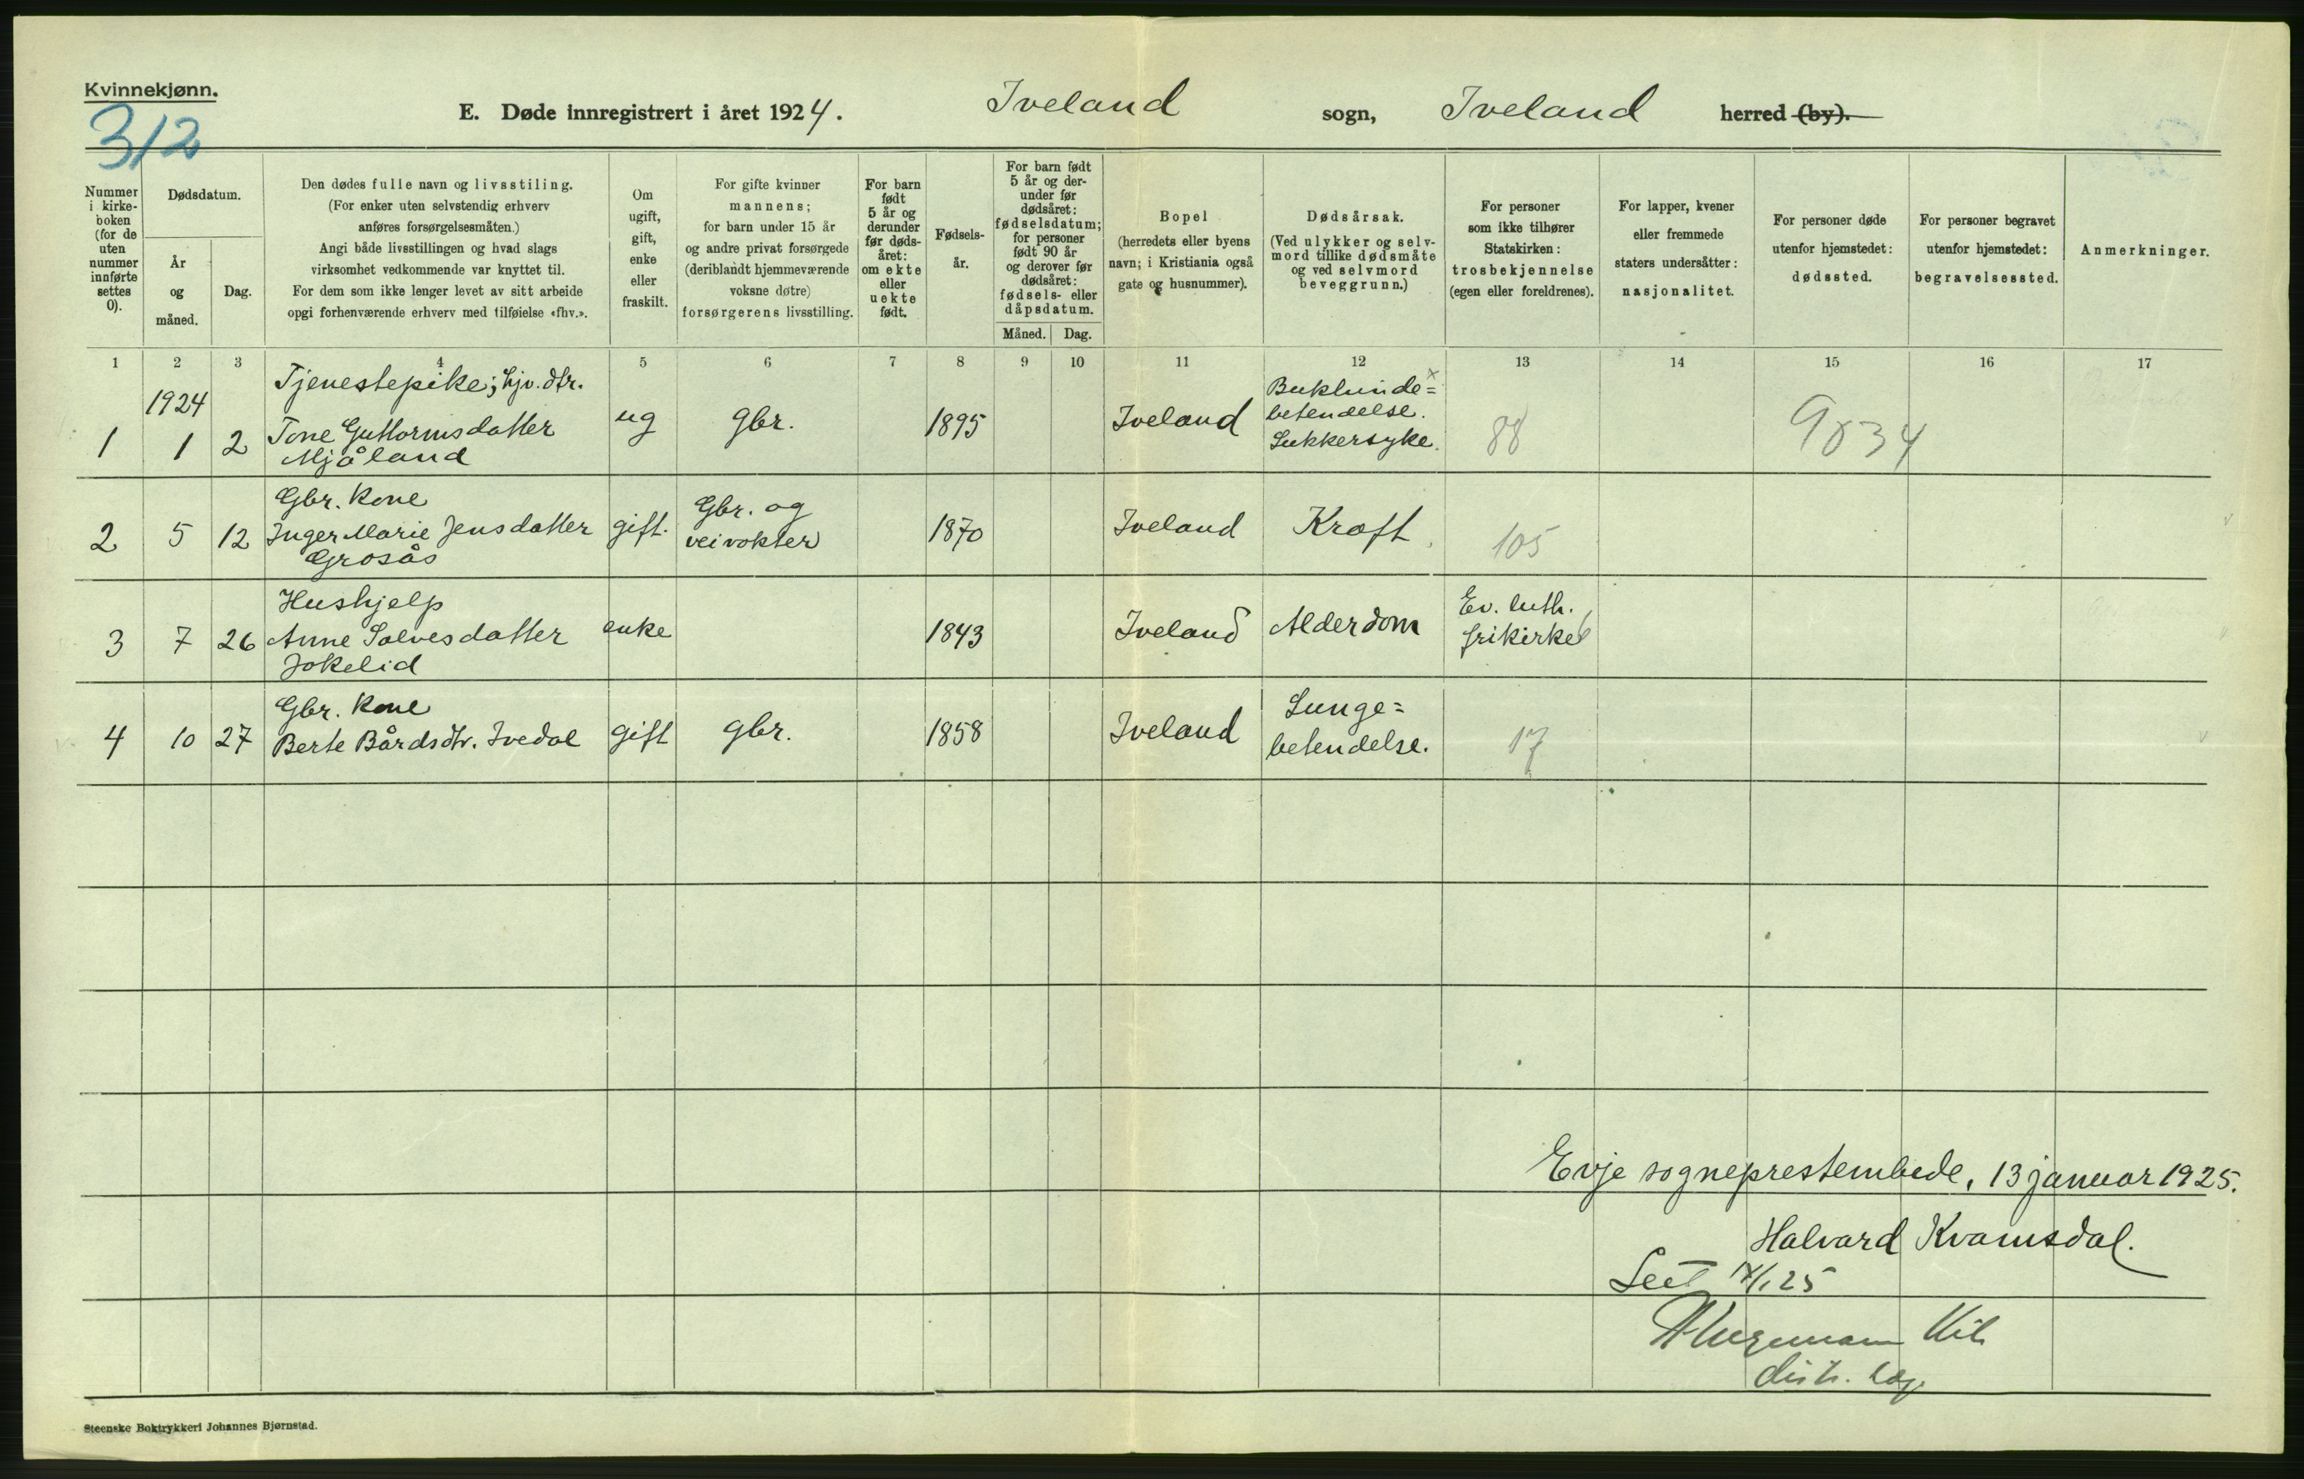 Kvinnekjønn.
312
E. Døde innregistrert i året 1924. Iveland sogn, Iveland herred (by).
Nummer
i kirke-
boken
(for de
uten
nummer
innførte
settes
0).
Dødsdatum.
År
og
måned.
Dag.
Den dødes fulle navn og livsstiling.
(For enker uten selvstendig erhverv
anføres forsørgelsesmåten.)
Angi både livsstillingen og hvad slags
virksomhet vedkommende var knyttet til.
For dem som ikke lenger levet av sitt arbeide
opgi forhenværende erhverv med tilføielse «fhv.».
Om
ugift,
gift,
enke
eller
fraskilt.
For gifte kvinner
mannens;
for barn under 15 år
og andre privat forsørgede
(deriblandt hjemmeværende
voksne døtre)
forsørgerens livsstilling.
For barn
født
5 år og
derunder
før døds-
året:
om ekte
eller
uekte
født.
Fødsels-
år.
For barn født
5 år og der-
under før
dødsåret:
fødselsdatum;
for personer
født 90 år
og derover før
dødsåret:
fødsels- eller
dåpsdatum.
Måned. Dag.
Bopel
(herredets eller byens
navn; i Kristiania også
gate og husnummer).
Dødsårsak.
(Ved ulykker og selv-
mord tillike dødsmåte
og ved selvmord
beveggrunn.)
For personer
som ikke tilhører
Statskirken:
trosbekjennelse
(egen eller foreldrenes).
For lapper, kvener
eller fremmede
staters undersåtter:
nasjonalitet.
For personer døde
utenfor hjemstedet:
dødssted.
For personer begravet
utenfor hjemstedet:
begravelsessted.
Anmerkninger.
1 2 3 4 5 6 7 8 9 10 11 12 13 14 15 16 17
1924
1 1 2
Tjenestepike; hjv. dtr.
Tone Guttormsdatter
Mjåland
ug gbr. 1895 Iveland
Bukhinde=
betendelse.
Sukkersyke.
88 9834
2 5 12
Gbr. kone
Inger Marie Jensdatter
Grosås
gift.
Gbr. og
veivokter
1870 Iveland Kræft 105
3 7 26
Hushjelp
Anne Salvesdatter
Jokelid
enke 1843 Iveland Alderdom
Ev. luth.
frikirke
4 10 27
Gbr. kone
Berte Bårdsdtr. Ivedal
gift gbr. 1858 Iveland
Lunge=
betendelse.
17
Evje sogneprestembede, 13 januar 1925.
Halvard Kvamsdal.
Sett 14/1 25
distr. læge
Steenske Boktrykkeri Johannes Bjørnstad.